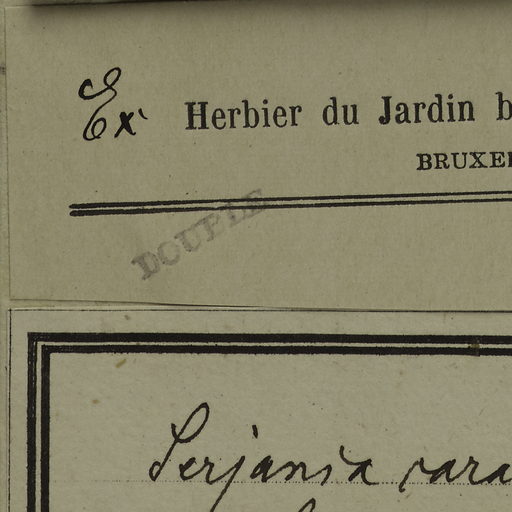 Ex Herbier du Jardin b
BRUXE
DOUBLE
Serjania cara